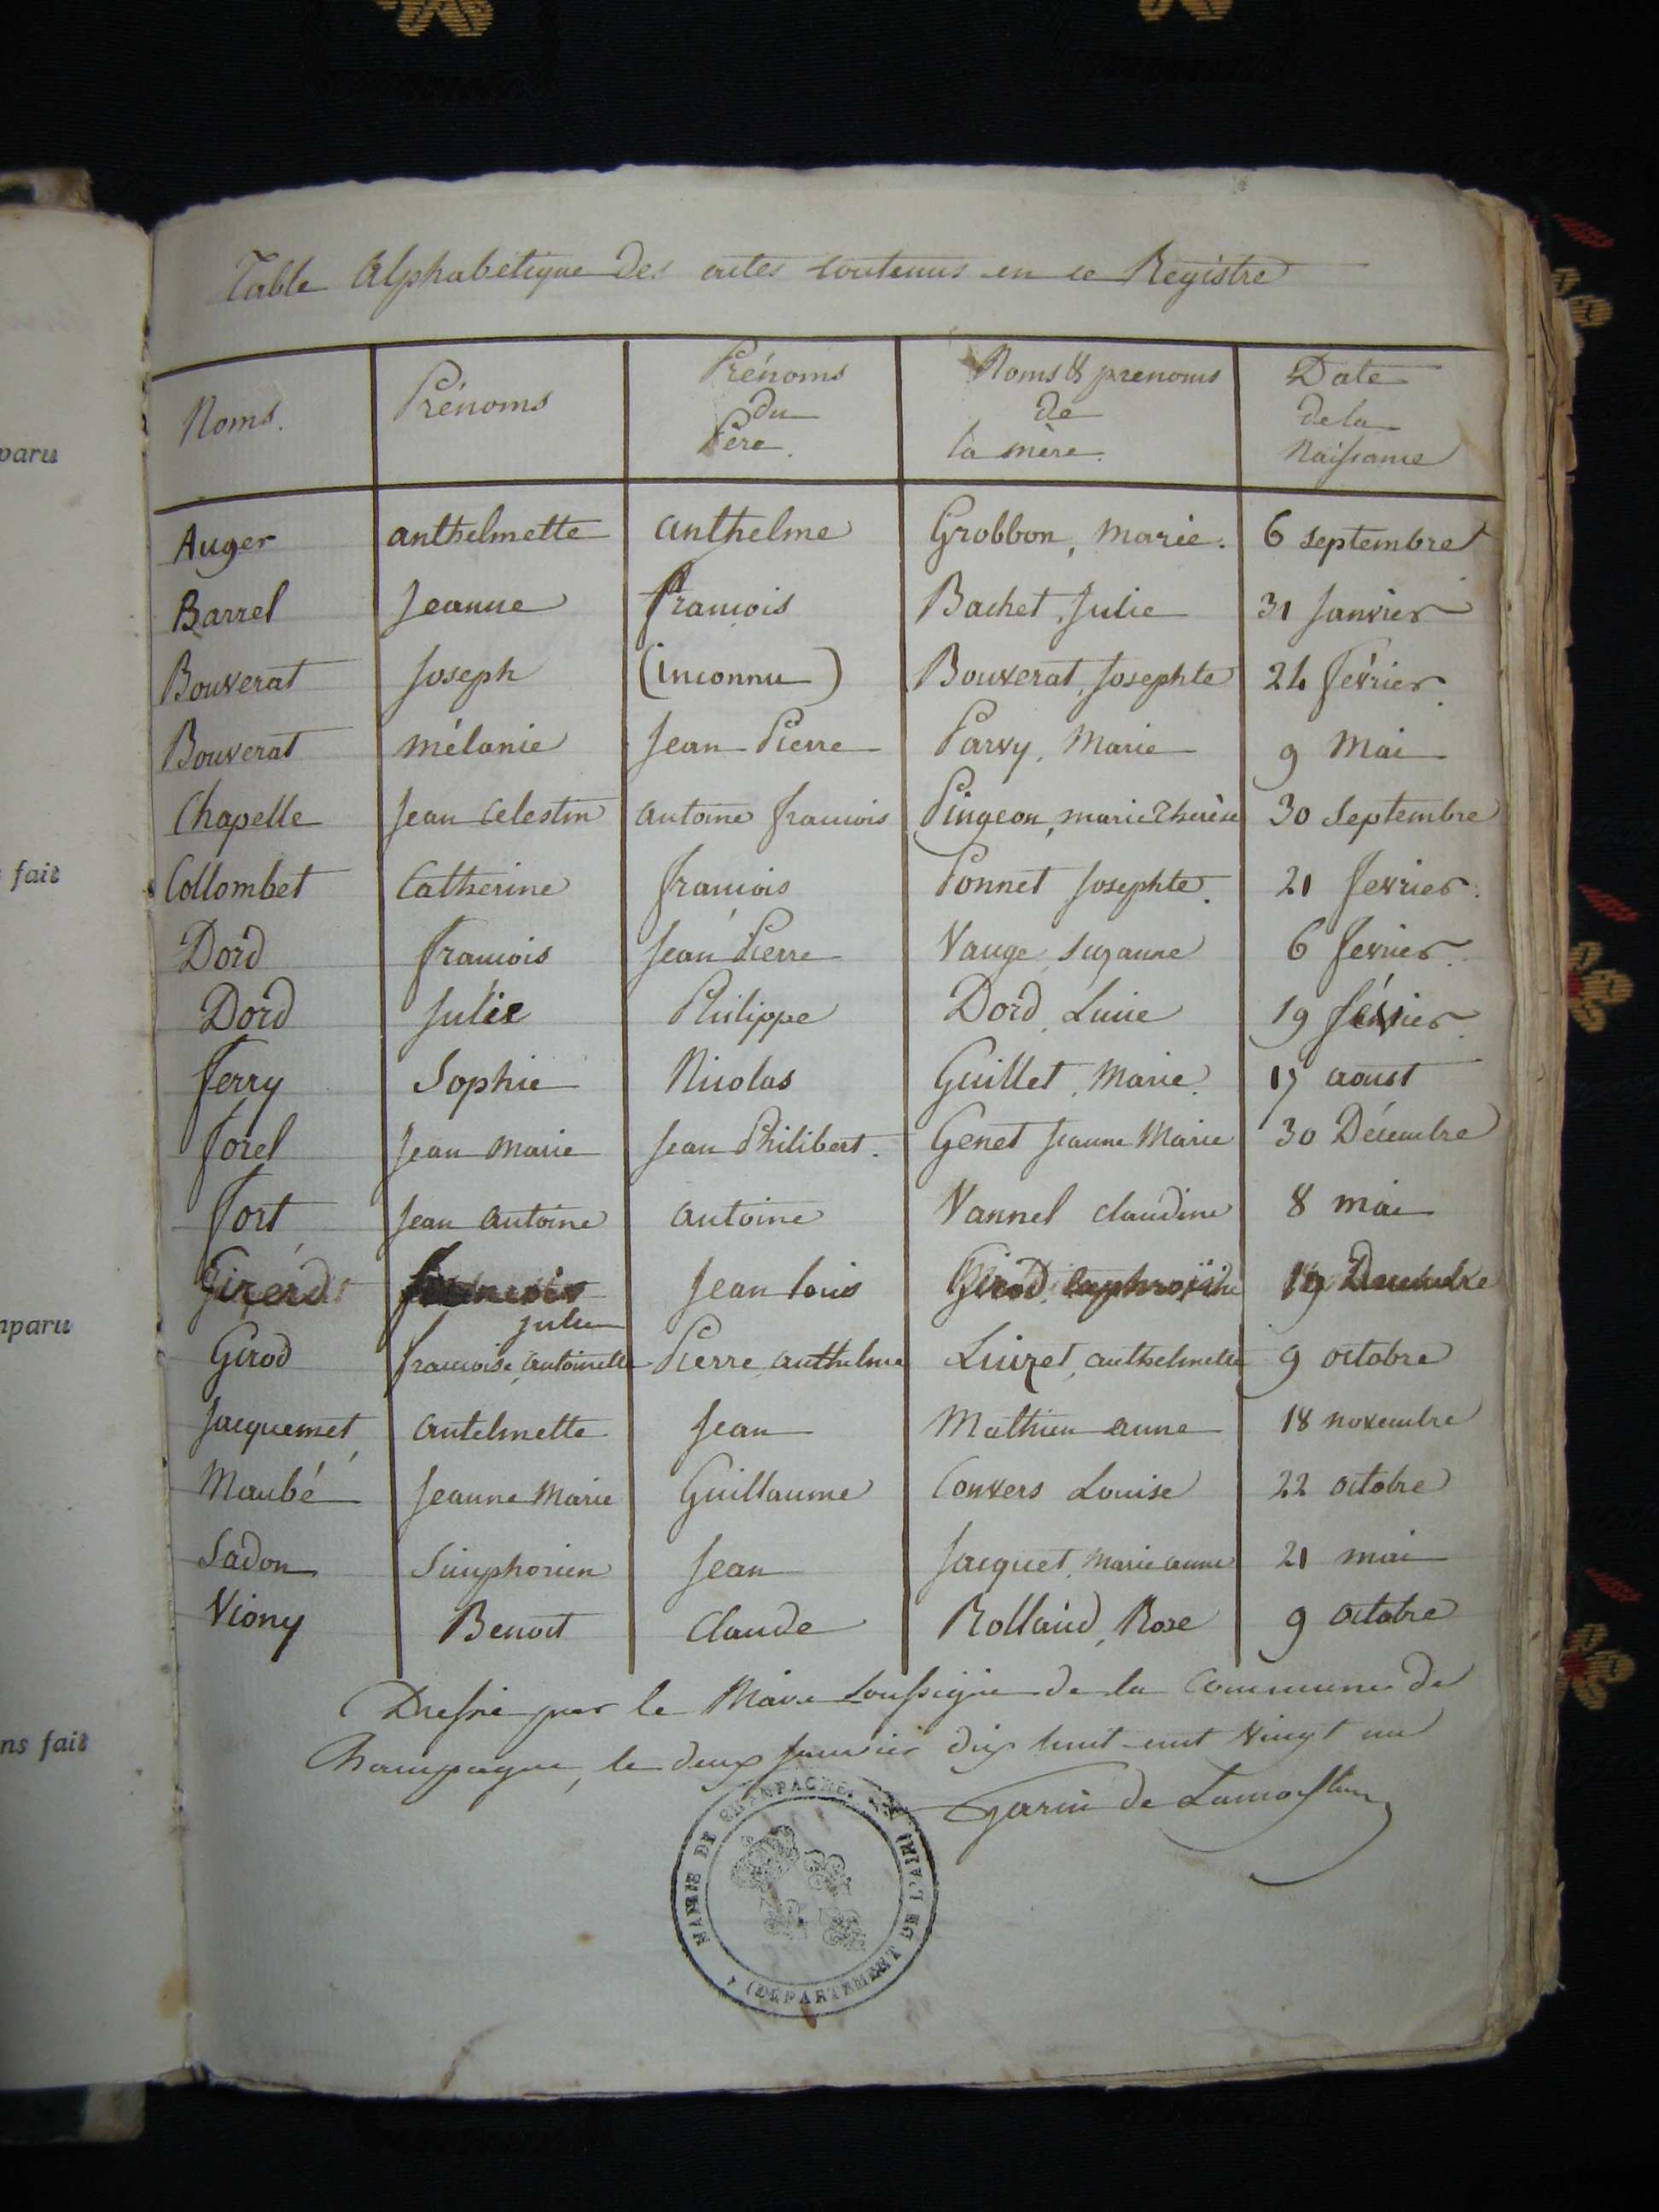 paru
fait
mparu
ns fait
Table Alphabétique Des actes contenus en ce Registre
Noms. Prénoms Prénoms du Père. Noms & prenoms de la mère. Date de la Naissance
Auger anthelmette anthelme Grobbon, marie. 6 septembre
Barrel Jeanne françois Bachet, Julie 31 Janvier
Bouverat Joseph (inconnu) Bouverat, Josephte 24 février
Bouverat mélanie Jean Pierre Parvy, Marie 9 Mai
Chapelle Jean Celestin antoine francois Pingeon, marie Thérèse 30 Septembre
Collombet Catherine françois Ponnet Josephte. 21 fevrier.
Dord francois Jean Pierre Vauge, Suzanne 6 fevrier.
Dord Julie Philippe Dord, Lucie 19 février.
ferry Sophie Nicolas Guillet, Marie. 17 aoust
forel Jean Marie Jean Philibert. Genet Jeanne Marie 30 Décembre
fort Jean antoine antoine Vannel claudine 8 mai
Jean louis Girod 19 Decembre
Girod francoise, antoinette julie Pierre anthelme Luizet, anthelmette 9 octobre
Jacquemet antelmette Jean Mathieu anne 18 novembre
Maubé Jeanne Marie Guillaume Convers Louise 22 octobre
Sadon Simphorien Jean Jacquet, Marie anne 21 mai
Viony Benoit Claude Rolland, Rose 9 octobre
Dressé par le Maire Soussigné de la Commune de
Champagne, le deux Janvier dix huit cent vingt un
Garin de Lamorflan
MAIRIE DE CHAMPAGNE (DÉPARTEMENT DE L'AIN)